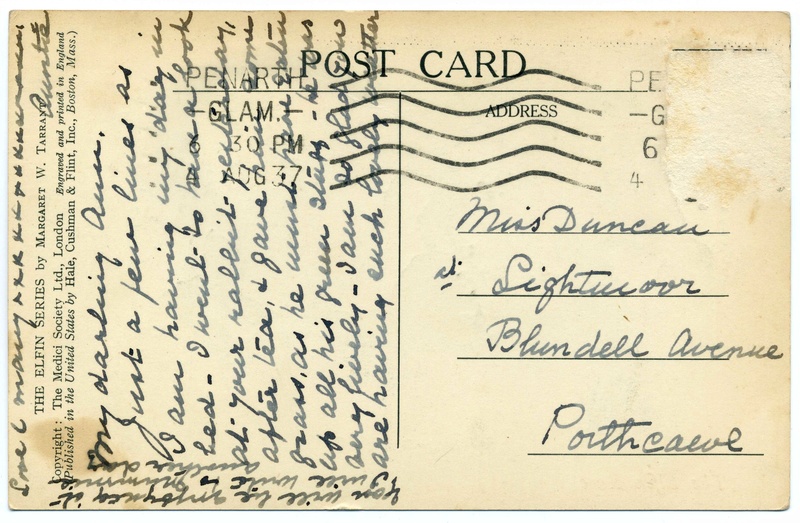 POST CARD
ADDRESS
PENARTH
-GLAM.-
6 30 PM
4 AUG 37
PE
-G
6
4
Miss Duncan
at Lightmoor
Blundell Avenue
Porthcawl
THE ELFIN SERIES by MARGARET W. TARRANT
Copyright: The Medici Society Ltd., London Engraved and printed in England
Published in the United States by Hale, Cushman & Flint, Inc., Boston, Mass.)
My darling Ann,
Just a few lines as
I am having my day in
bed - I went to have a look
at your rabbit yesterday,
after tea, & gave him some
grass, as he
up all his green - he is
very lively - I am so glad you
are having such lovely weather
You will be enjoying it -
I will write to Mummy
another day
Love & many x x x x x x x x from
Auntie